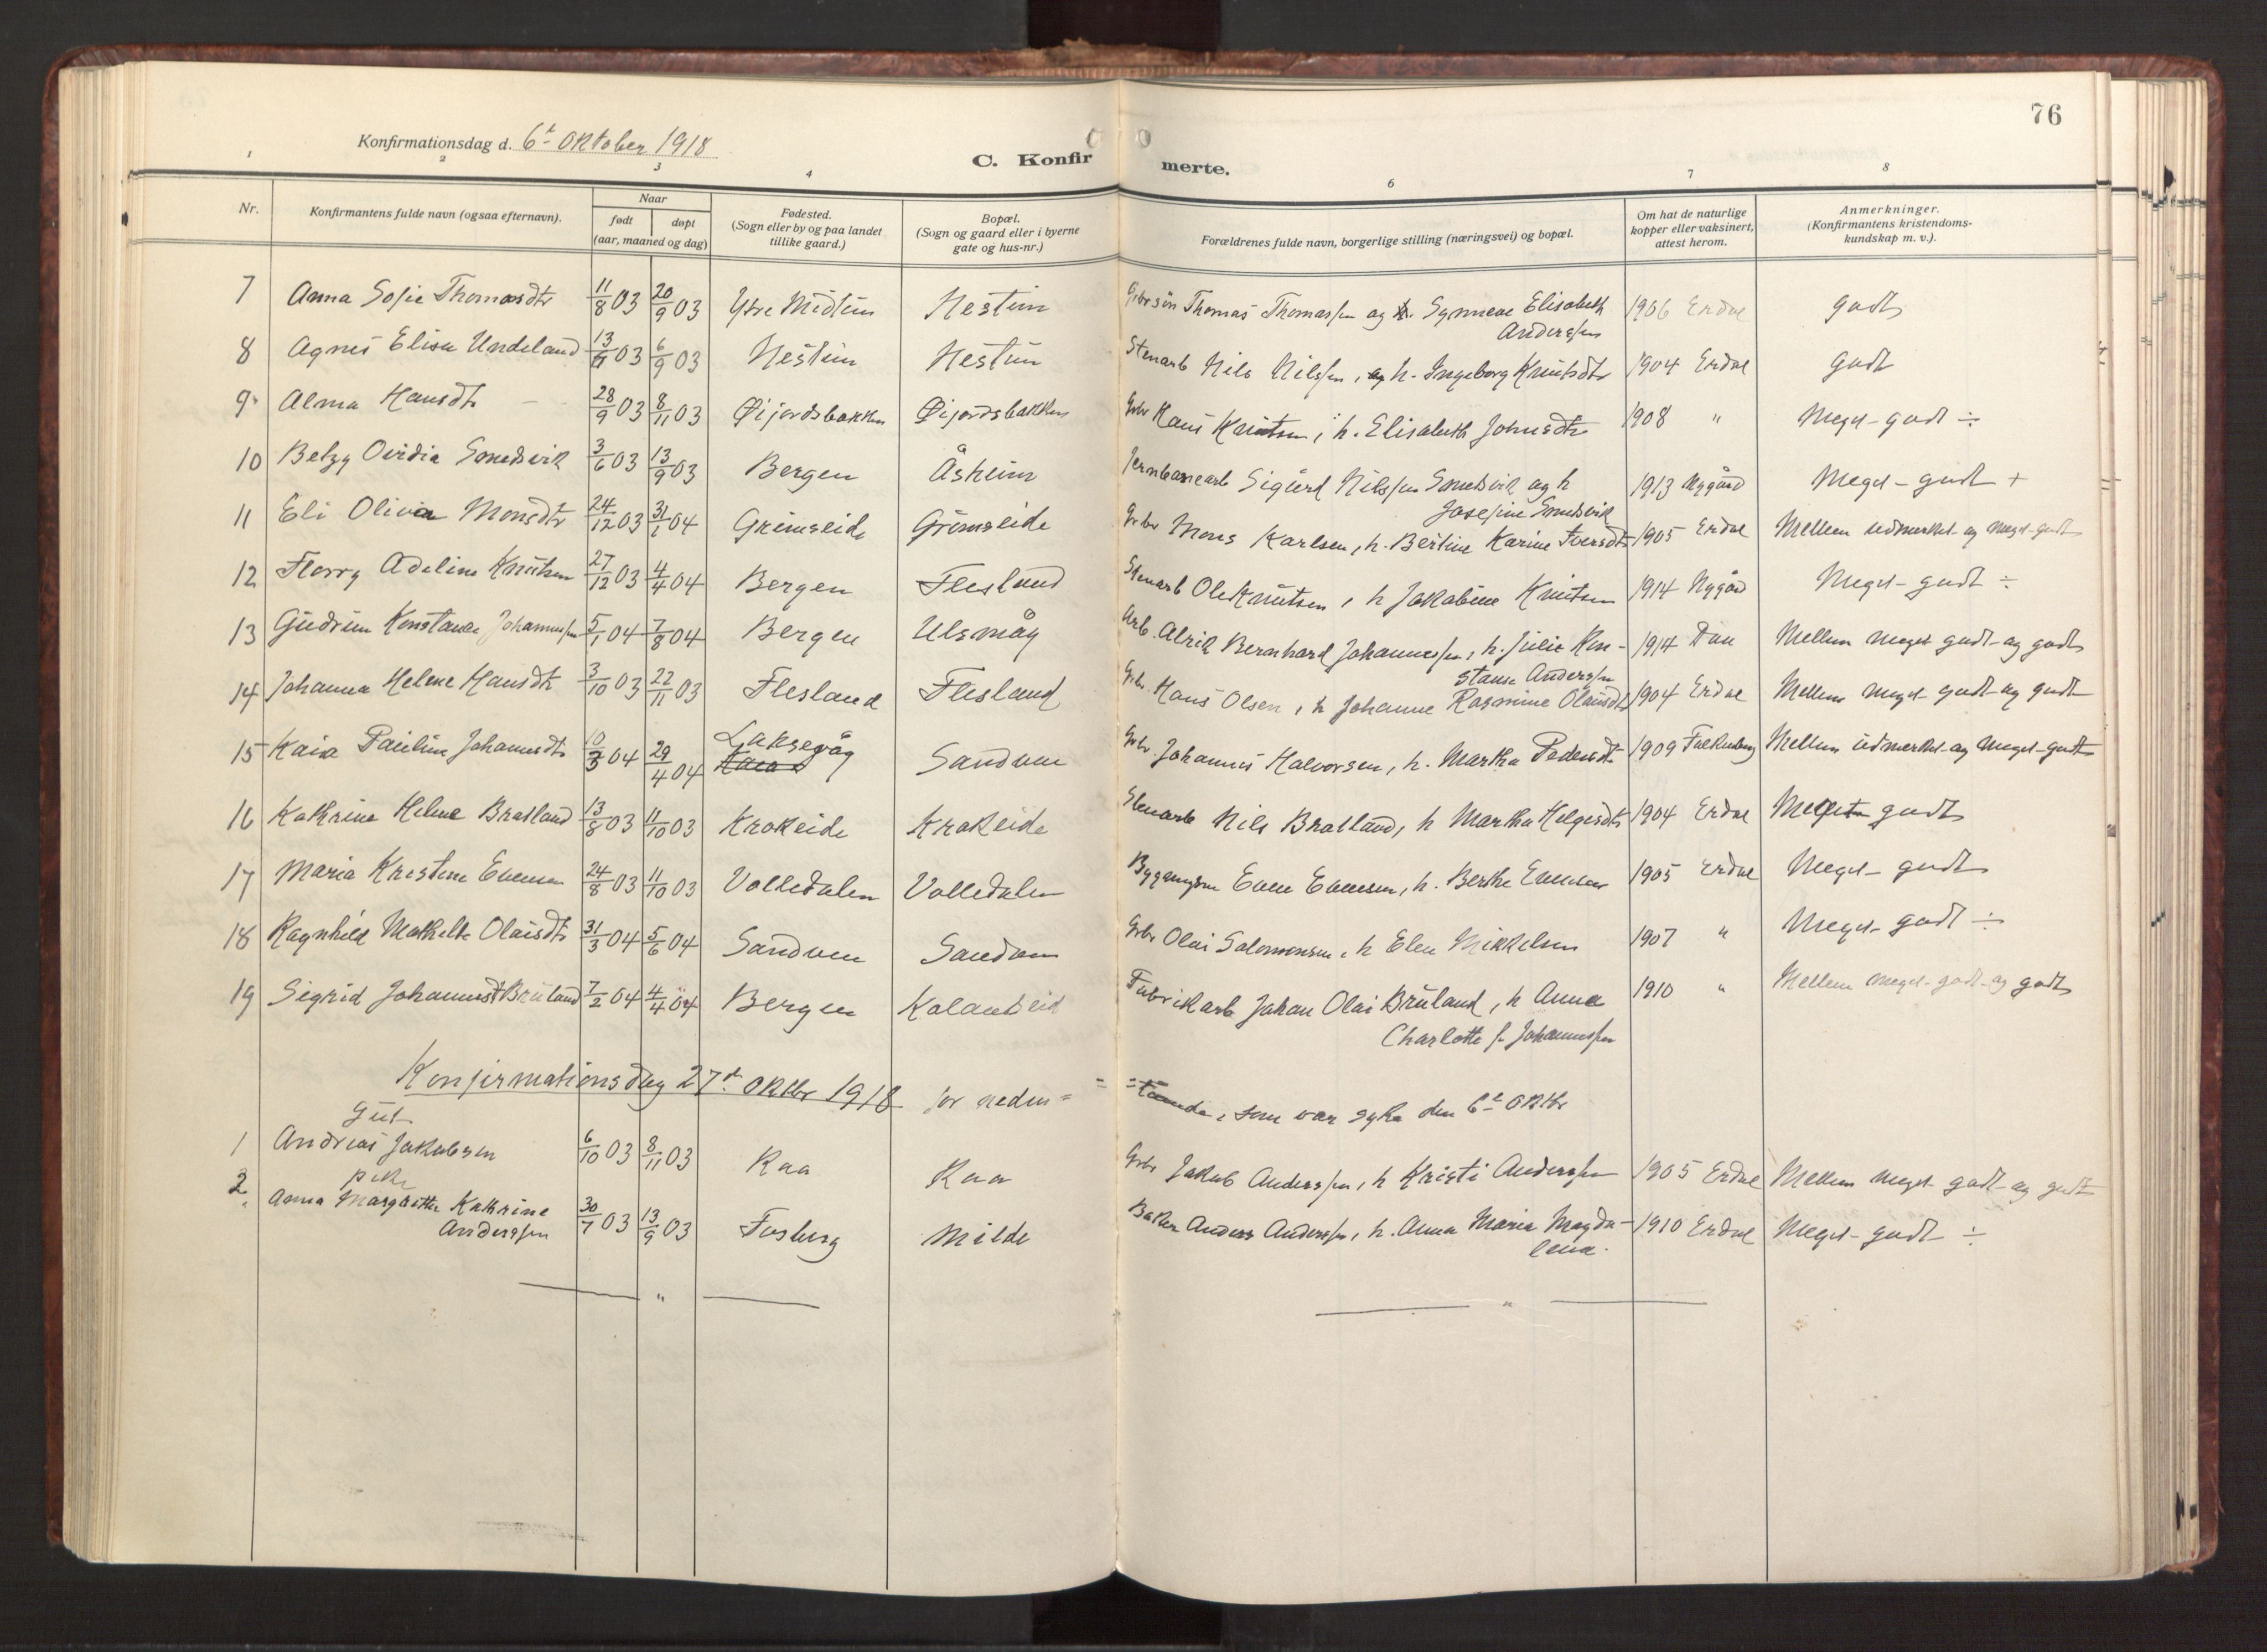 76
Konfirmationsdag d. 6t Oktober 1918
C. Konfirmerte.
1 2 3 4 6 7 8
Nr. Konfirmantens fulde navn (ogsaa efternavn). Naar født døpt (aar, maaned og dag) Fødested. (Sogn eller by og paa landet tillike gaard.) Bopæl. (Sogn og gaard eller i byerne gate og hus-nr.) Forældrenes fulde navn, borgerlige stilling (næringsvei) og bopæl. Om hat de naturlige kopper eller vaksinert, attest herom. Anmerkninger. (Konfirmantens kristendoms-kundskap m. v.).
7 Anna Sofie Thomasdtr 11/8 03 20/9 03 Ytre Midtun Nestun Gbrsøn Thomas Thomassen og h. Synneve Elisabeth Anderssen 1906 Erdal godt
8 Agnes Elisa Undeland 13/ 03 6/9 03 Nestun Nestun Stenarb Nils Nilssen, og h. Ingeborg Knutsdtr 1904 Erdal godt
9 Alma Hansdtr 28/9 03 8/11 03 Øijordsbakken Øijordsbakken Gbr Hans Knutsen, h. Elisabeth Johnsdtr 1908 " Meget-godt ÷
10 Betzy Ovidia Smedsvik 3/6 03 13/9 03 Bergen Åsheim Jernbanearb Sigurd Nilssen Smedsvik og h Josefine Smedsvik 1913 Nygård Meget-godt +
11 Eli Olivia Monsdtr 24/12 03 31/1 04 Grimseide Grimseide Gbr Mons Karlsen, h. Bertine Karine Iversdtr 1905 Erdal Mellem udmerket og meget-godt
12 Florry Adeline Knutsen 27/12 03 4/4 04 Bergen Flesland Stenarb Ole Knutsen, h Jakobine Knutsen 1914 Nygård Meget-godt ÷
13 Gudrun Konstanse Johannessen 5/1 04 7/8 04 Bergen Ulsmåg Arb. Alrik Bernhard Johannessen, h. Julie Kon-stanse Anderssen 1914 Meget Mellem meget godt og godt
14 Johanna Helene Hansdtr 3/10 03 22/11 03 Flesland Flesland Gbr. Hans Olsen, h Johanne Rasmine Olausdtr 1904 Erdal Mellem meget godt og godt
15 Kaia Pauline Johannesdtr 10/3 04 29/4 04 Laksevåg Sandven Gbr. Johannes Halvorsen, h. Martha Pedersdtr 1909 Falkenberg Mellem udmerket og meget-godt
16 Kathrine Helene Bratland 13/8 03 11/10 03 Krokeide Krokeide Stenarb Nils Bratland, h Martha Helgesdtr 1904 Erdal Meget godt
17 Maria Kristine Evensen 24/8 03 11/10 03 Volledalen Volledalen Even Evensen, h. Berthe Evensen 1905 Erdal Meget-godt
18 Ragnhild Mathilde Olaisdtr 31/3 04 5/6 04 Sandven Sandven Gbr Olai Salomonsen, h Elen Mikkelsen 1907 " Meget-godt ÷
19 Sigrid Johannesdt Bruland 7/2 04 4/4 04 Bergen Kalandseid Fabrikarb Johan Olai Bruland, h Anna Charlotte f. Johannessen 1910 " Mellem meget-godt og godt
Konfirmationsdag 27d Oktbr 1918 for neden= =stående, som var syke den 6t Oktbr
Gut
1 Andreas Jakobsen 6/10 03 8/11 03 Raa Raa Gbr Jakob Anderssen, h Kristi Anderssen 1905 Erdal Mellem meget godt og godt
pike
2. Anna Margrethe Kathrine Anderssen 30/7 03 13/9 03 Fosberg Milde Baker Anders Anderssen, h. Anna Maria Magda-lena. 1910 Erdal Meget-godt ÷